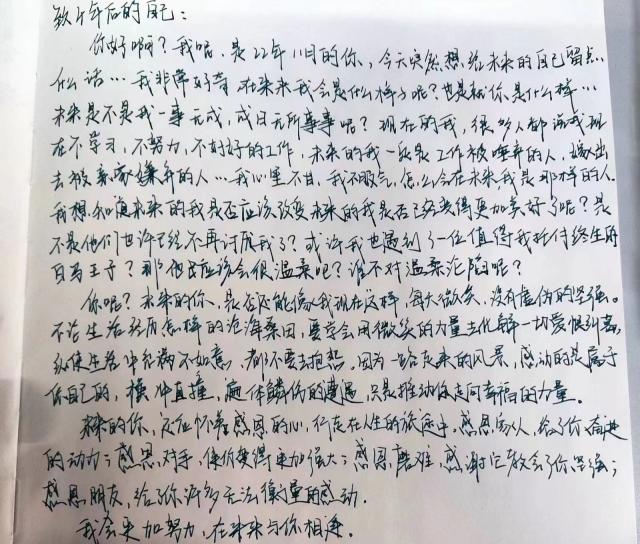 致5年后的自己：
你好啊？我呢，是22年11月的你，今天突然想给未来的自己留点
什么话…我非常好奇在未来我会是什么样子呢？也是就你是什么样…
未来是不是我一事无成，成日无所事事呢？现在的我，很多人都说我现
在不学习，不努力，不好好的工作，未来的我一定是工作被唾弃的人，嫁出
去被亲家嫌弃的人…我心里不甘，我不服气，怎么会在未来，我是那样的人
我想知道未来的我是否应该改变未来的我是否已经变得更加美好了呢？是
不是他们也许已经不再讨厌我了？或许我也遇到了一位值得我托付终生的
白马王子？那他应该会很温柔吧？谁不对温柔沦陷呢？
你呢？未来的你，是否还能像我现在这样，每天微笑，没有虚伪的坚强。
不论生活经历怎样的沧海桑田，要学会用微笑的力量去化解一切爱恨纠葛，
纵使生活中充满不如意，都不要去抱怨，因为一路走来的风景，感动的是属于
你自己的，横冲直撞，遍体鳞伤的遭遇，只是推动你走向幸福的力量。
未来的你，应怀着感恩的心，行走在人生的旅途中，感恩家人，给了你奋进
的动力；感恩对手，使你变得更加强大；感恩磨难，感谢它教会了你坚强；
感恩朋友，给了你许多无法衡量的感动．
我会更加努力，在未来与你相逢．